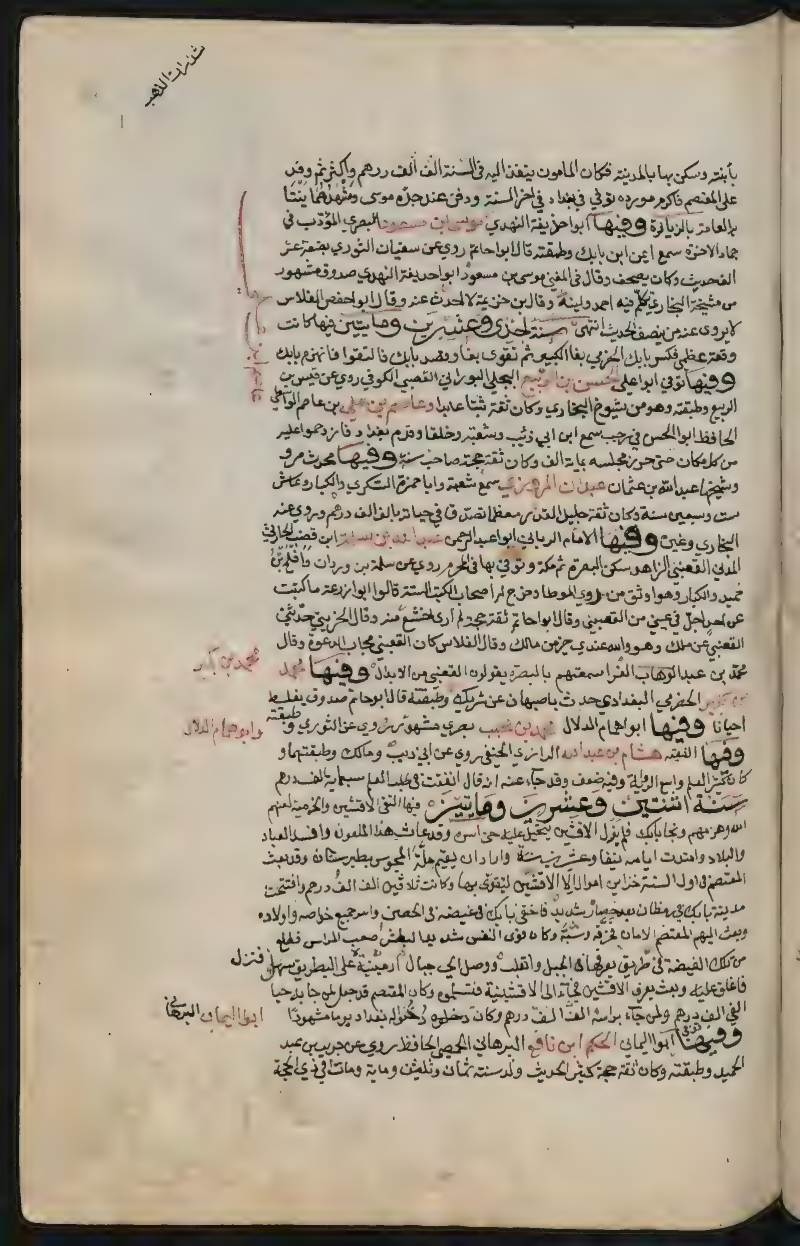 شذرات الذهب
بأبنته وسكن بها بالمدينة فكان المامون ينفذ اليه في السنة الف الف درهم واكثر ثم وفد
على المعتصم فاكرم مورده توفي في بغداد في اخر السنة ودفن عند جده موسى ومشهدهما ينتا
به العامة بالزيارة وفيها ابو احذيفة النهدي موسى ابن مسعود البصري المؤدب في
جماد الاخرة سمع ايمن ابن نابك وطبقته قال ابوا حاتم روى عن سفيات الثوري بضعة عشر
الف حديث وكان يصحف وقال في المغني موسى بن مسعود ابوا حديفة النهدي صدوق مشهور
من مشيخة البخاري تكلم فيه احمد ولينه وقال بن خزيمة لا احدث عنه وقال ابوا حفص الفلاس
لا يروي عنه من ينصف الحديث انتهى سنة احدى وعشرين ومايتين فيها كانت
وقعة عظمى فكسر بابك الخرمي بغا الكبير ثم تقوى بغا وقصد بابك فالتقوا فانهزم بابك
وفيها توفي ابوا علي الحسن بن الربيع البجلي البوراني القصبي الكوفي روى عن قيس بن
الربيع وطبقته وهو من شيوخ البخاري وكان ثقة ثبتا عابدا وعاصم بن علي بن عاصم الواسطي
الحافظ ابوا الحسن في رجب سمع ابن ابي ذئب وشعبة وخلقا وقدم بغداد فازدحموا عليه
من كل مكان حتى حزر مجلسه بماية الف وكان ثقة حجة صاحب سنة وفيها محدث مرو
وشيخها عبد الله بن عثمان عبدان المروزي سمع شعبة وابا حمزة السكري والكبار وعاش
ست وسبعين سنة وكان ثقة جليل القدر معظما تصدق في حياته بالف الف درهم وروى عنه
البخاري وغيره وفيها الامام الرباني ابوا عبد الرحمن عبد الله بن مسلمة ابن قعنب الحارثي
المدني القعنبي الزاهد سكن البصرة ثم مكة وتوفي بها في المحرم روى عن سلمة بن وردان وافلح بن
حميد والكبار وهو اوثق من روى الموطا وخرج له اصحاب الكتب الستة قال ابوا زرعة ما كتبت
عن احد اجل في عيني من القعنبي وقال ابوا حاتم ثقة حجة لم ارى اخشع منه وقال الخريبي حدثني
القعنبي عن ملك وهو والله عندي خير من مالك وقال الفلاس كان القعنبي مجاب الدعوة وقال
محمد بن عبد الوهاب الفرا سمعتهم بالبصرة يقولون القعنبي من الابدال وفيها محمد
بن بكير الحضرمي البغدادي حدث باصبهان عن شريك وطبقته قال ابو حاتم صدوق يغلط
احيانا وفيها ابوا همام الدلال محمد بن محبب بصري مشهور روى عن الثوري وطبقته
وفيها الفقيه هشام بن عبد الله الرازي الحنفي روى عن ابي ذيب ومالك وطبقتهما و
كان كثير العلم واسع الرواية وفيه ضعف وقد جاء عنه انه قال انفقت في طلب العلم سبعماية الف درهم
سنة اثنتين وعشرين ومايتين فيها التقى الافشين والخرمية لعنهم
الله وهزمهم ونجا بابك فلم يزل الافشين يتحيل عليه حتى اسره وقد عاث هذا الملعون وافسد العباد
والبلاد وامتدت ايامه نيفا وعشرين سنة واراد ان يقيم ملة المجوس بطبرستان وقد بعث
المعتصم في اول السنة خزاين اموال الى الافشين ليتقوى بها وكانت ثلاثين الف الف درهم وافتتحت
مدينة بابك في رمضان بعد حصار شديد فاختفى بابك في غيضة في الحصن واسر جميع خواصه واولاده
وبعث اليهم المعتصم الامان فخرقه وسبه وكان قوي النفس شديد البطش صعب المراس فطلع
من تلك الغيضة في طريق يعرفها في الجبل وانفلت ووصل الى جبال ارمينية فنزل على البطريق سهل
فاغلق عليه وبعث يعرف الافشين فجاء الى الافشينية فتسلموه وكان المعتصم قد جعل لمن جا به حيا
الفي الف درهم ولمن جاء براسه الف الف درهم وكان دخوله بغداد يوما مشهودا
وفيها توفي ابوا اليماني الحكم ابن نافع البرهاني الحمصي الحافظ روى عن حريز بن عبد
الحميد وطبقته وكان ثقة حجة كثير الحديث ولد سنة ثمان وثلثين وماية ومات في ذي الحجة
محمد بن بكير
وابو همام الدلال
ابوا اليمان البرهاني